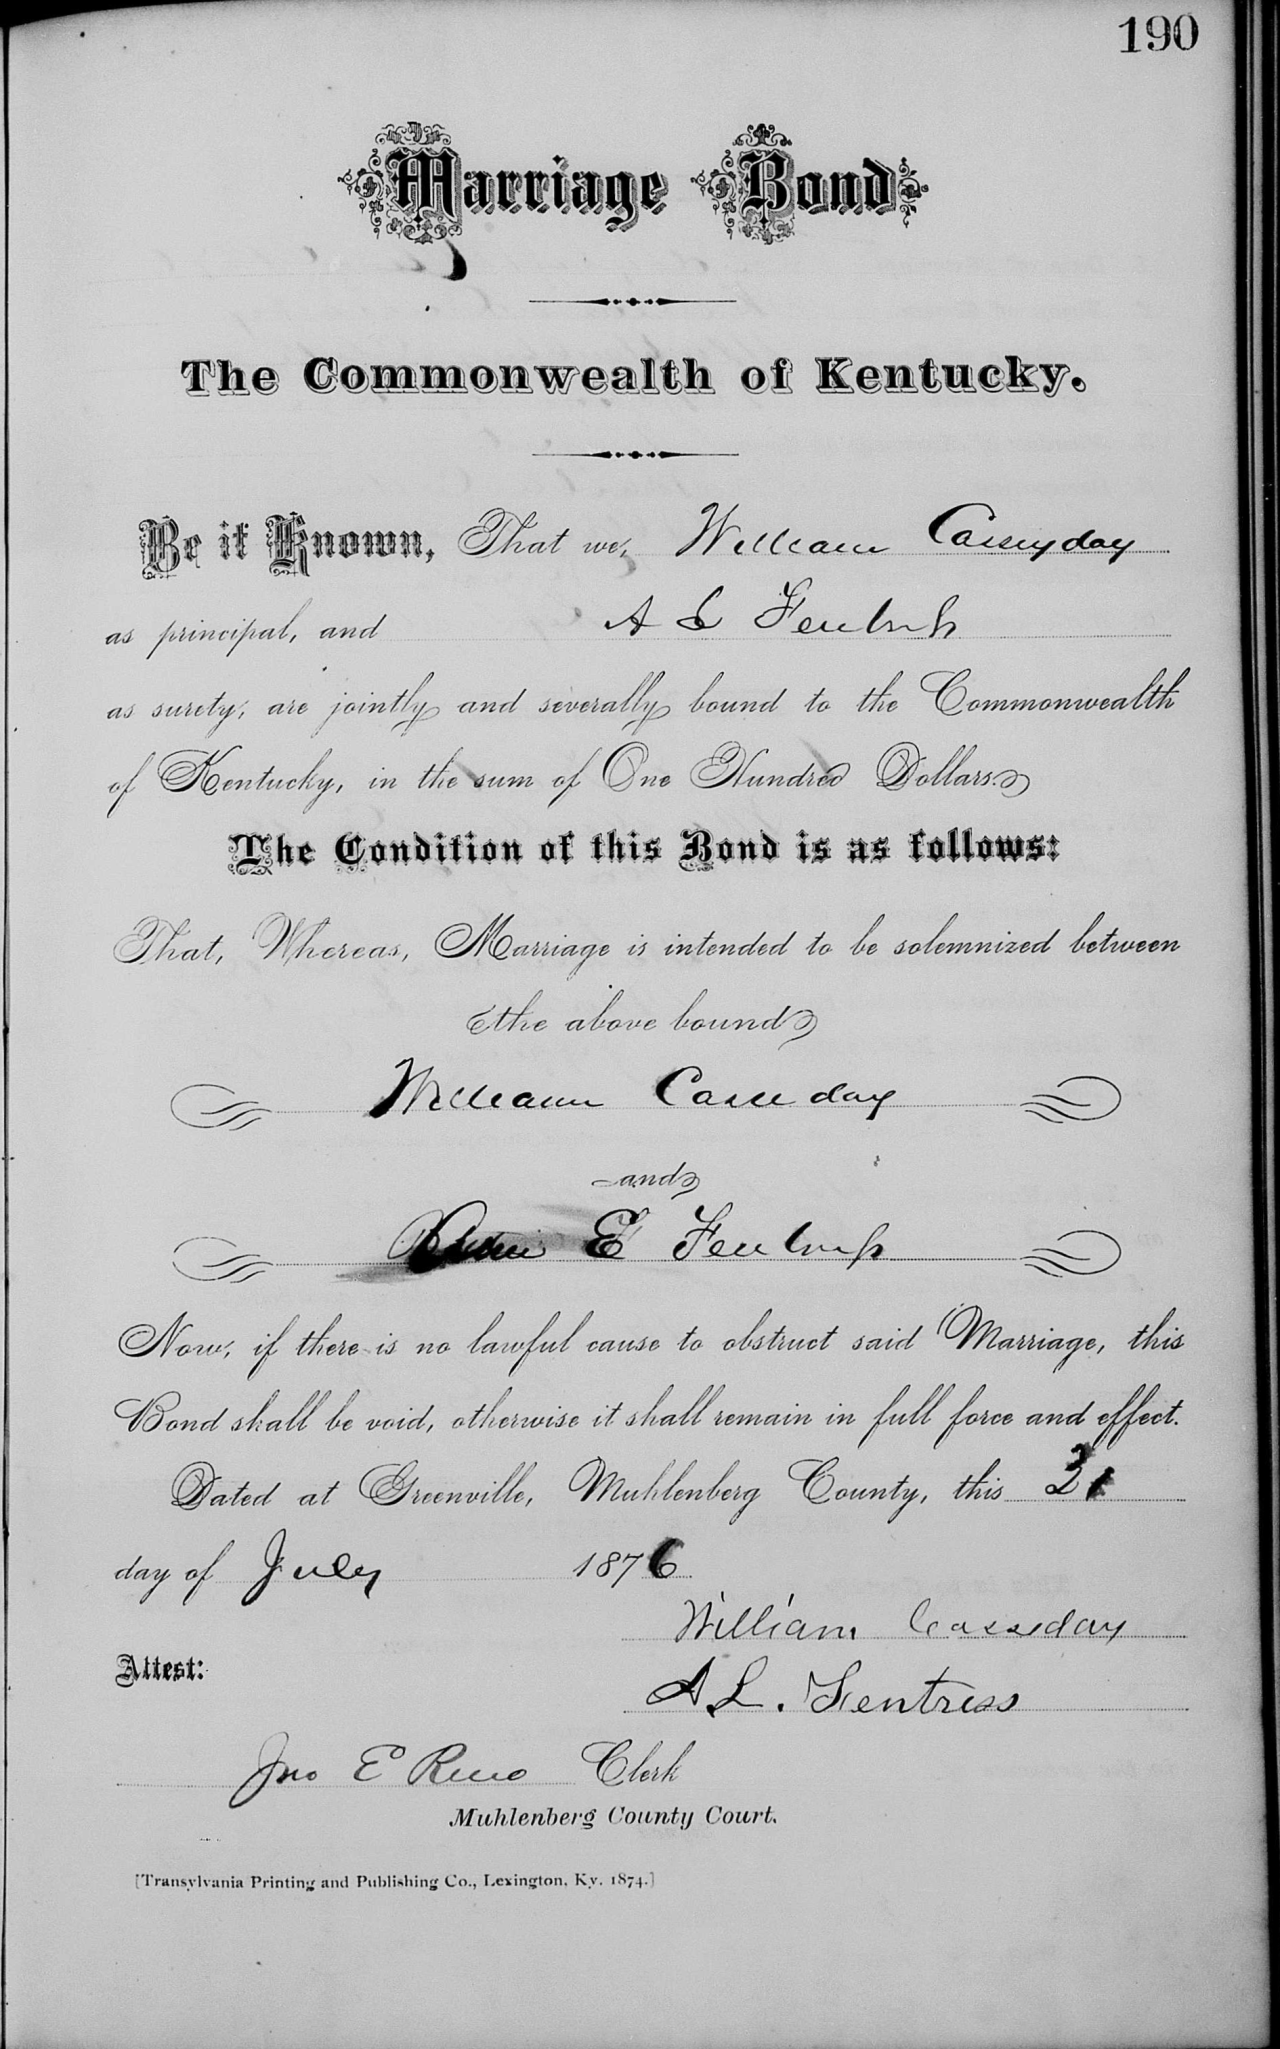 190
Marriage Bond
The Commonwealth of Kentucky.
Be it Known, That we, William Cassyday
as principal, and A L Fentress
as surety, are jointly and severally bound to the Commonwealth
of Kentucky, in the sum of One Hundred Dollars.
The Condition of this Bond is as follows:
That, Whereas, Marriage is intended to be solemnized between
the above bound
William Casseday
and
E Fentress
Now, if there is no lawful cause to obstruct said Marriage, this
Bond shall be void, otherwise it shall remain in full force and effect.
Dated at Greenville, Muhlenberg County, this 31
day of July 1876
William Casseday
Attest:
A L. Fentress
Jno E Reno Clerk
Muhlenberg County Court.
[Transylvania Printing and Publishing Co., Lexington, Ky. 1874.]